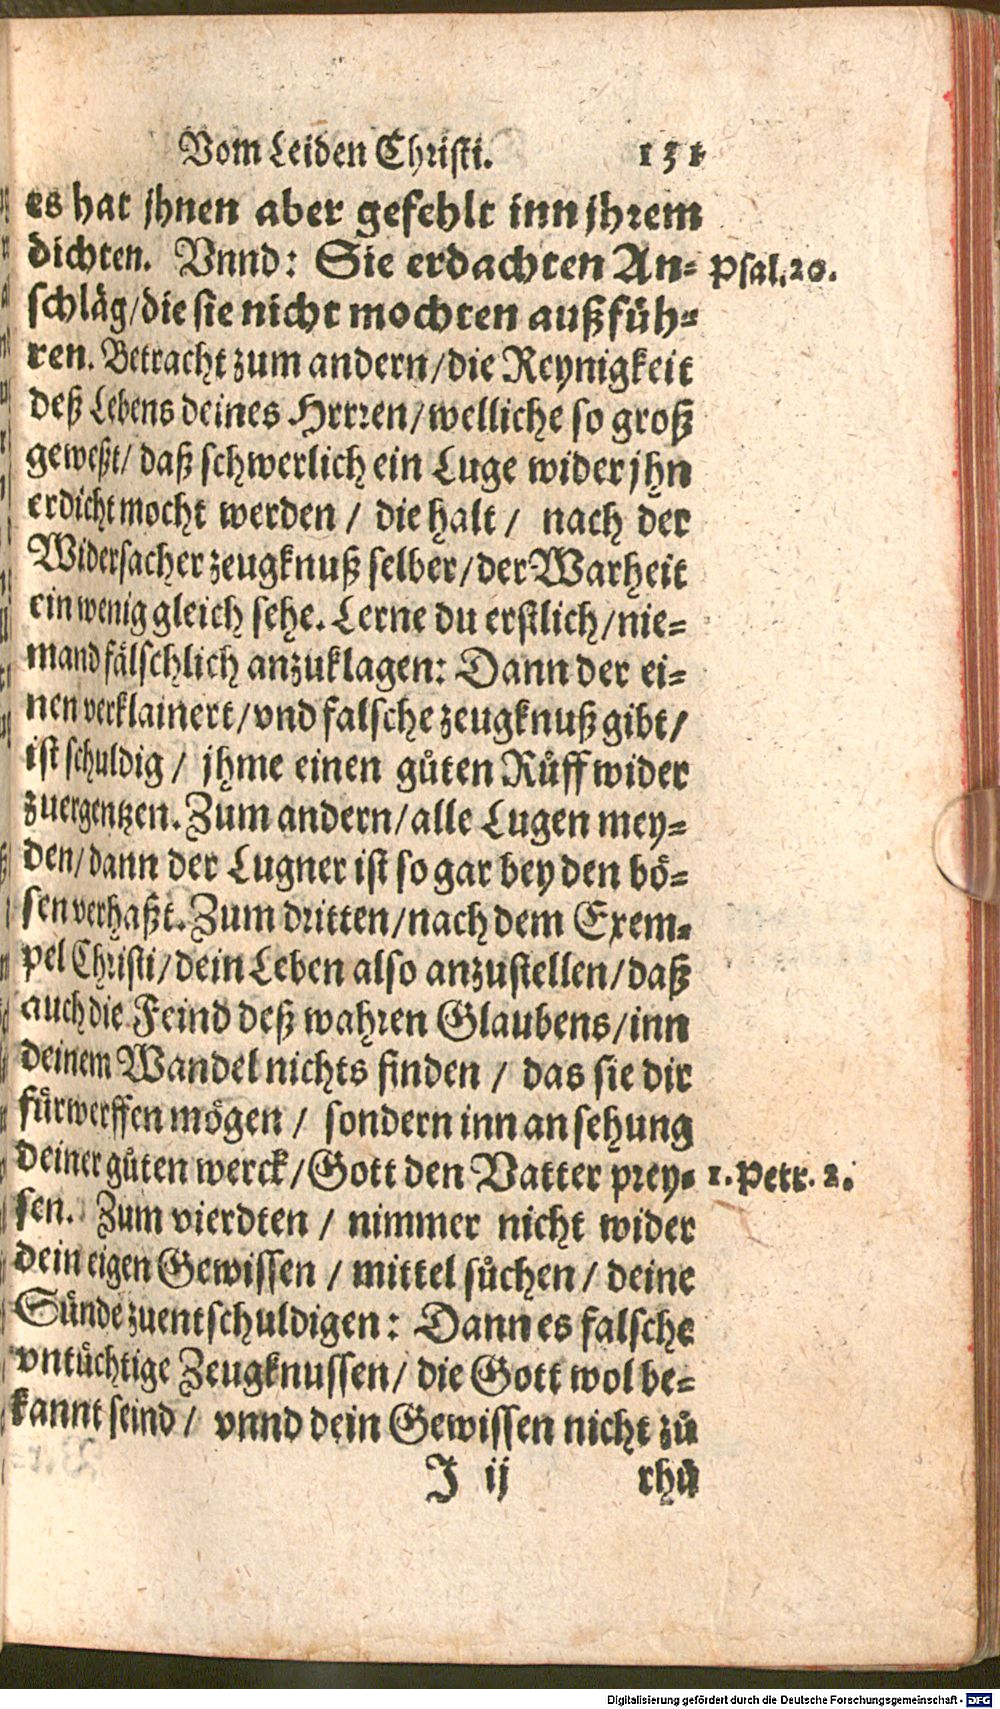 Vom Leiden Christi. 131
es hat jhnen aber gefehlt inn jhrem
dichten. Vnnd: Sie erdachten An= Psal. 20.
schläg/die sie nicht mochten außfüh=
ren. Betracht zum andern/die Reynigkeit
deß Lebens deines Hrrren/welliche so groß
geweßt/ daß schwerlich ein Luge wider jhn
erdicht mocht werden / die halt / nach der
Widersacher zeugknuß selber/der Warheit
ein wenig gleich sehe. Lerne du erstlich/nie=
mand fälschlich anzuklagen: Dann der ei=
nen verklainert/vnd falsche zeugknuß gibt/
ist schuldig / jhme einen gůten Růff wider
zuergentzen. Zum andern/alle Lugen mey=
den/dann der Lugner ist so gar bey den bö=
sen verhaßt. Zum dritten/nach dem Exem=
pel Christi/dein Leben also anzustellen/daß
auch die Feind deß wahren Glaubens/inn
deinem Wandel nichts finden / das sie dir
fürwerffen mögen / sondern inn ansehung
deiner gůten werck/Gott den Vatter prey= 1. Petr. 2.
sen. Zum vierdten / nimmer nicht wider
dein eigen Gewissen / mittel sůchen / deine
Sünde zuentschuldigen: Dann es falsche
vntüchtige Zeugknussen/ die Gott wol be=
kannt seind / vnnd dein Gewissen nicht zů
J ij rhů
Digitalisierung gefördert durch die Deutsche Forschungsgemeinschaft - DFG